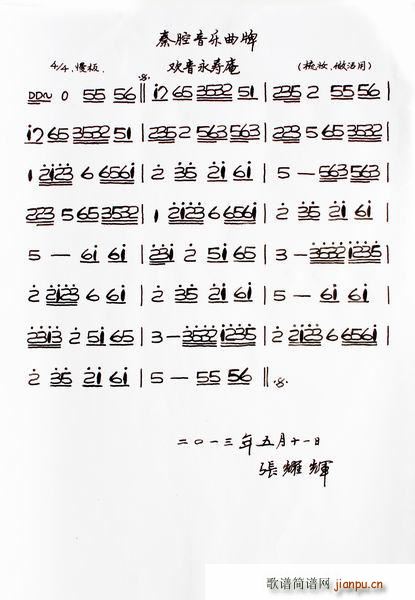 秦腔音乐曲牌
4/4 慢板 欢音永寿庵 (梳妆、做活用)
DD~ 0 55 56 ‖ i7 65 3532 51 | 235 2 55 56 |
i7 65 3532 51 | 2352 563 563 | 223 5 65 3532 |
1 2i23 6 656i | 2 35 2i 6i | 5 — 563 563 |
223 5 65 3532 | 1 2i23 6 656i | 2 35 2i 6i |
5 — 6i 6i | 23i 2 5i 65 | 3 — 3532 i235 |
2 2i23 6 6i | 2 35 2i 6i | 5 — 6i 6i |
23i3 2 5i 65 | 3 — 3532 i235 | 2 2i23 6 656i |
2 35 2i 6i | 5 — 55 56 ‖
二〇一三年五月十一日
張耀輝
歌谱简谱网
jianpu.cn